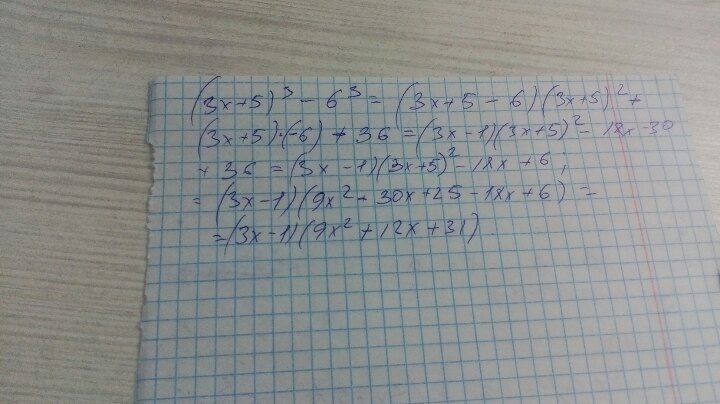 (3x+5)³ - 6³ = (3x+5-6)(3x+5)² +
(3x+5)·(-6) + 36 = (3x-1)(3x+5)² - 18x - 30
+ 36 = (3x-1)(3x+5)² - 18x + 6,
= (3x-1)(9x² + 30x + 25 - 18x + 6) =
= (3x-1)(9x² + 12x + 31)